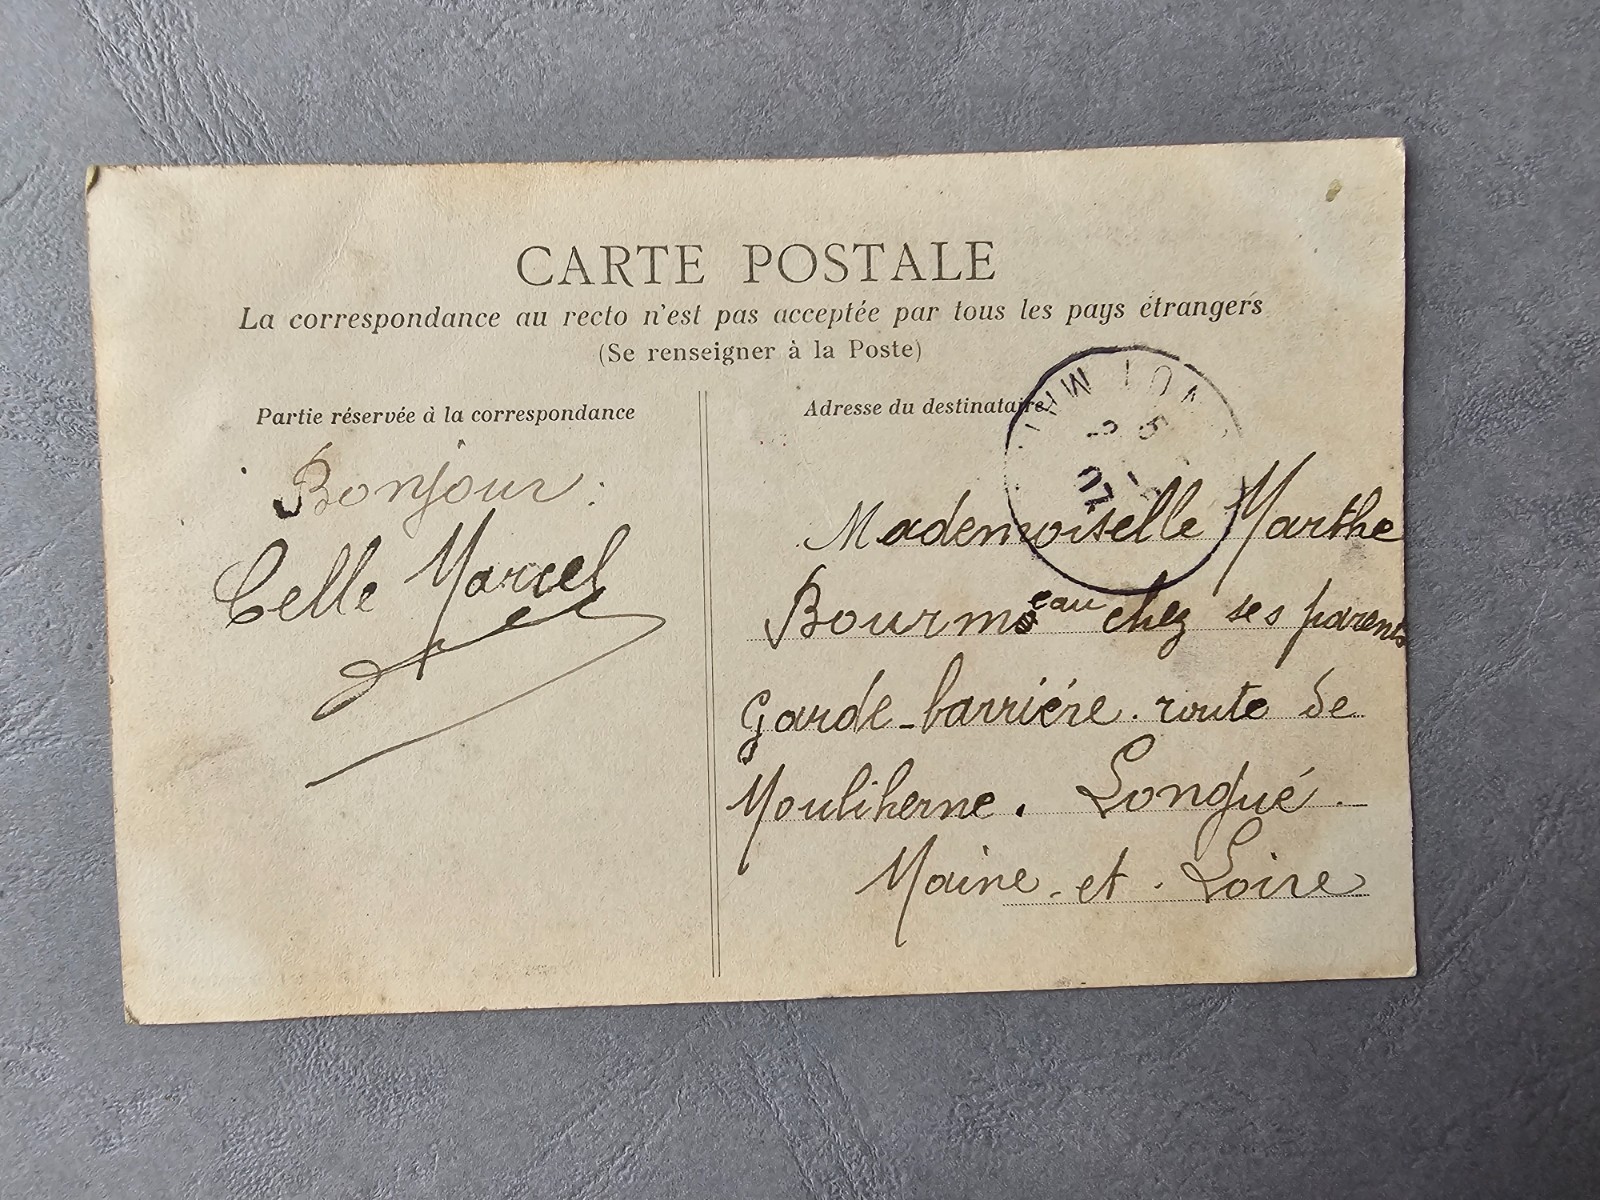 CARTE POSTALE
La correspondance au recto n'est pas acceptée par tous les pays étrangers
(Se renseigner à la Poste)
Partie réservée à la correspondance
Bonjour :
Celle Marcel
Adresse du destinataire
Mademoiselle Marthe
Bourmeau chez ses parents
Garde-barrière. route de
Mouliherne. Longué.
Maine-et-Loire